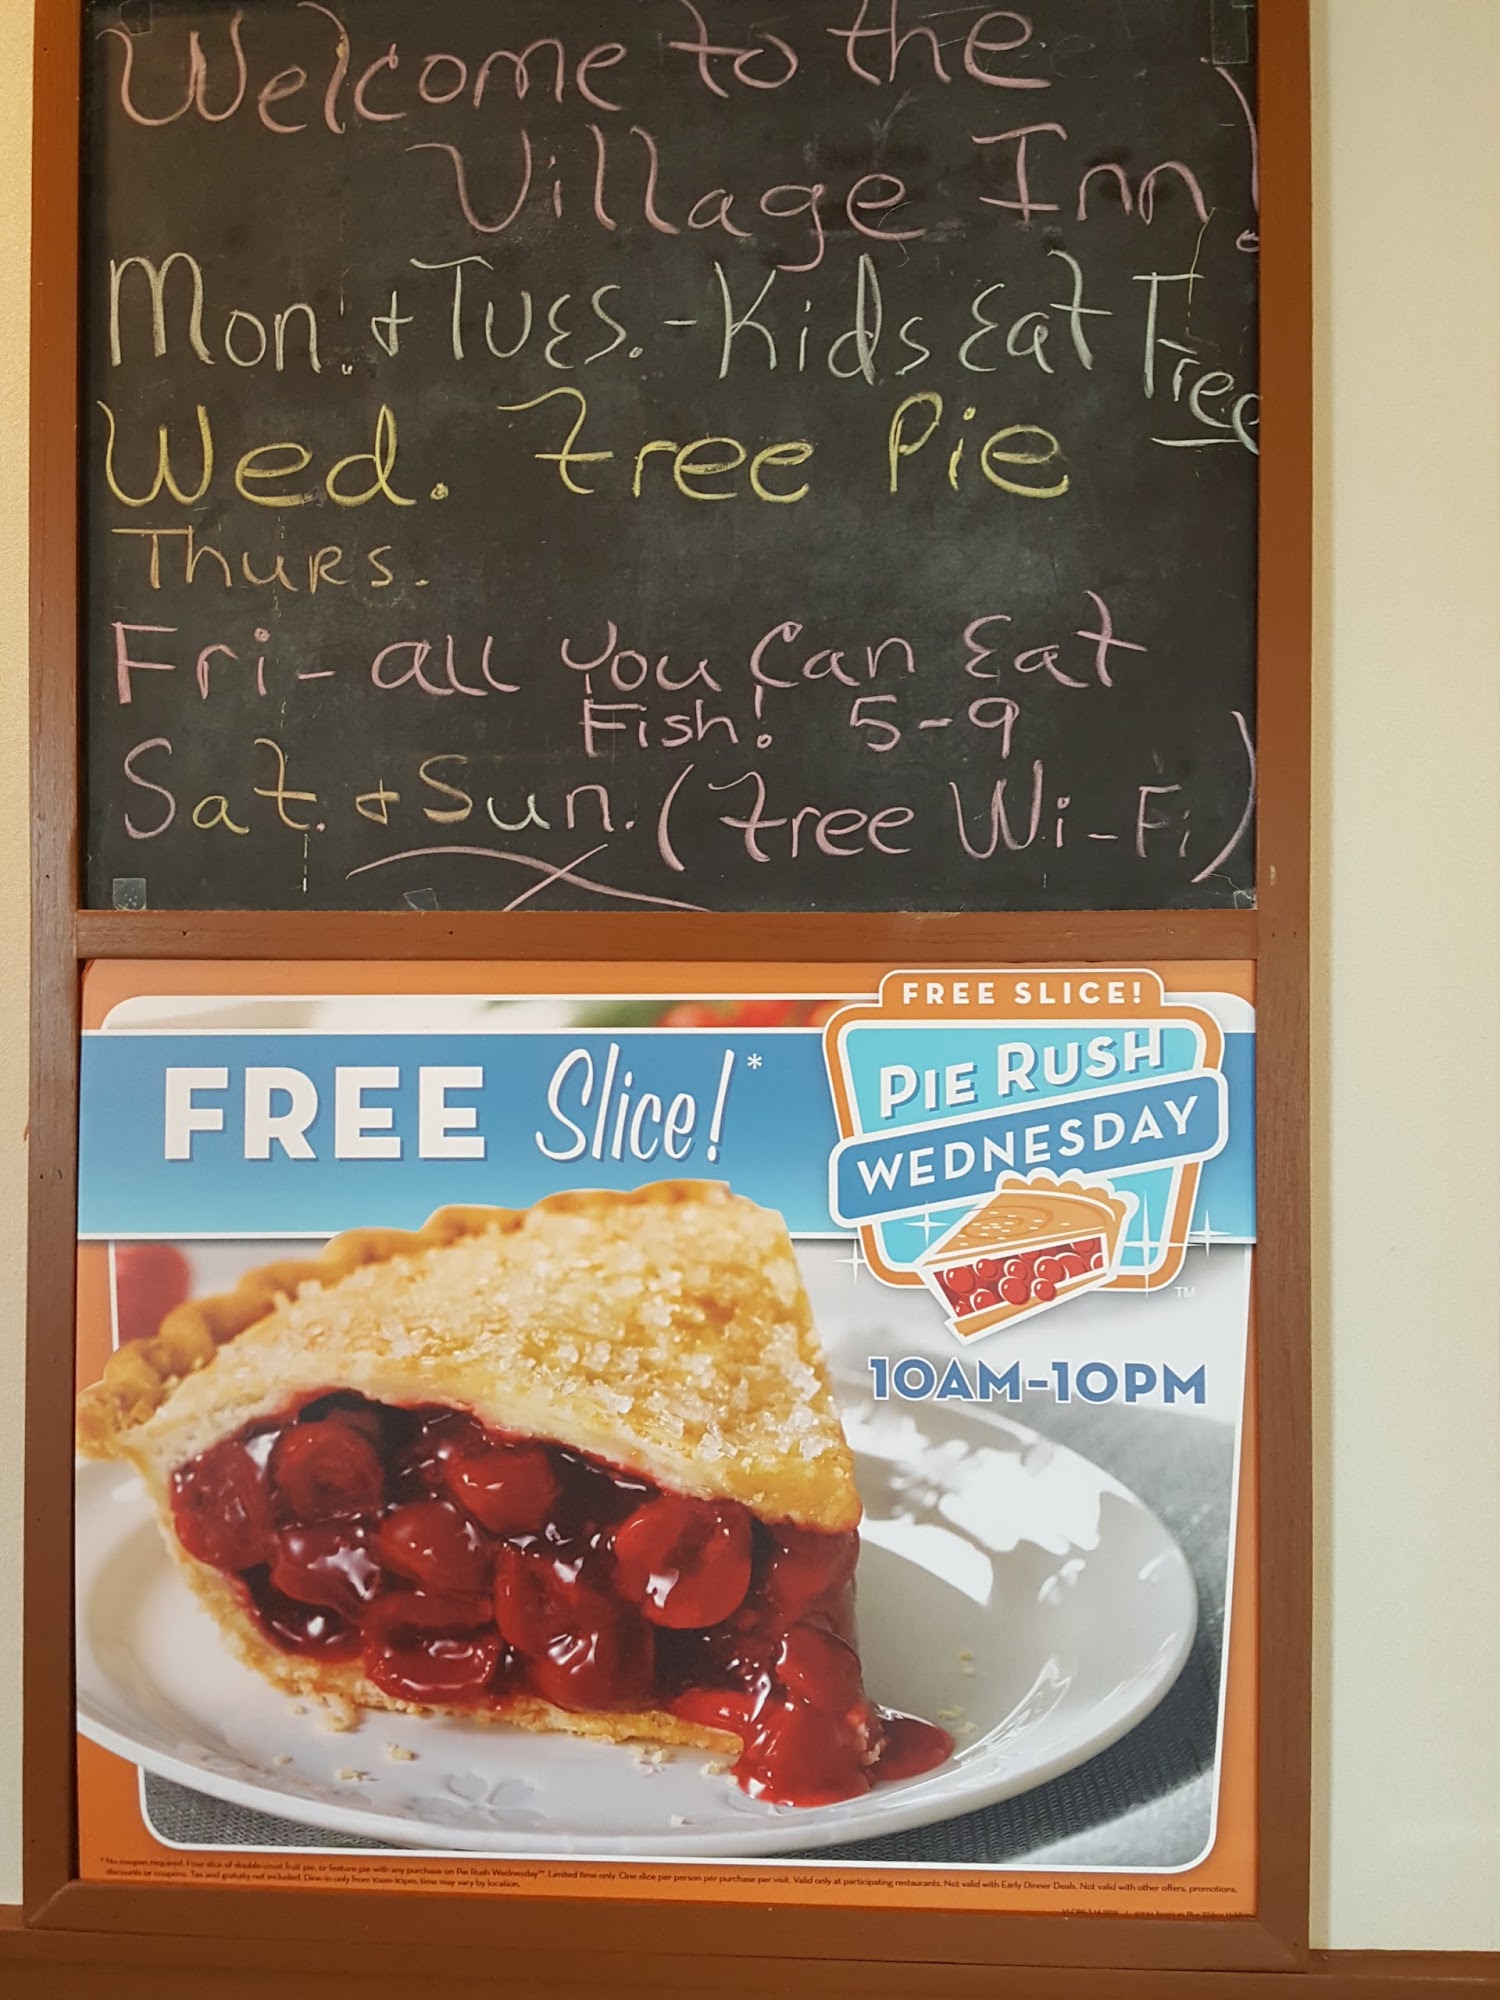 Welcome to the
Village Inn!
Mon. & Tues. - Kids Eat Free
Wed. Free Pie
Thurs.
Fri - all you Can Eat
Fish! 5-9
Sat. & Sun. (Free Wi-Fi)
FREE SLICE!
FREE Slice!*
PIE RUSH
WEDNESDAY
TM
10AM-10PM
*No coupon required. Free slice of double-crust fruit pie, or feature pie with any purchase on Pie Rush Wednesday™. Limited time only. One slice per person per purchase per visit. Valid only at participating restaurants. Not valid with Early Dinner Deals. Not valid with other offers, promotions,
discounts or coupons. Tax and gratuity not included. Dine-in only from 10am-10pm; time may vary by location.